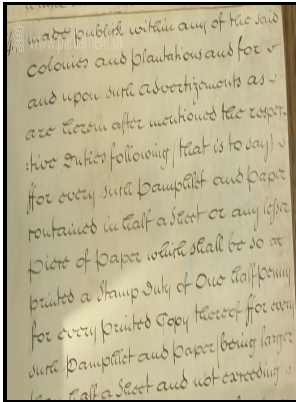 made publick within any of the said
Colonies and plantations and for
and upon such advertizements as
are herein after mentioned the respec-
:tive Duties following (that is to say)
ffor every such Pamphlet and paper
contained in half a Sheet or any lesser
piece of paper which shall be so
printed a Stamp Duty of One Halfpenny
for every printed Copy thereof ffor every
such Pamphlet and paper (being larger
than half a Sheet and not exceeding